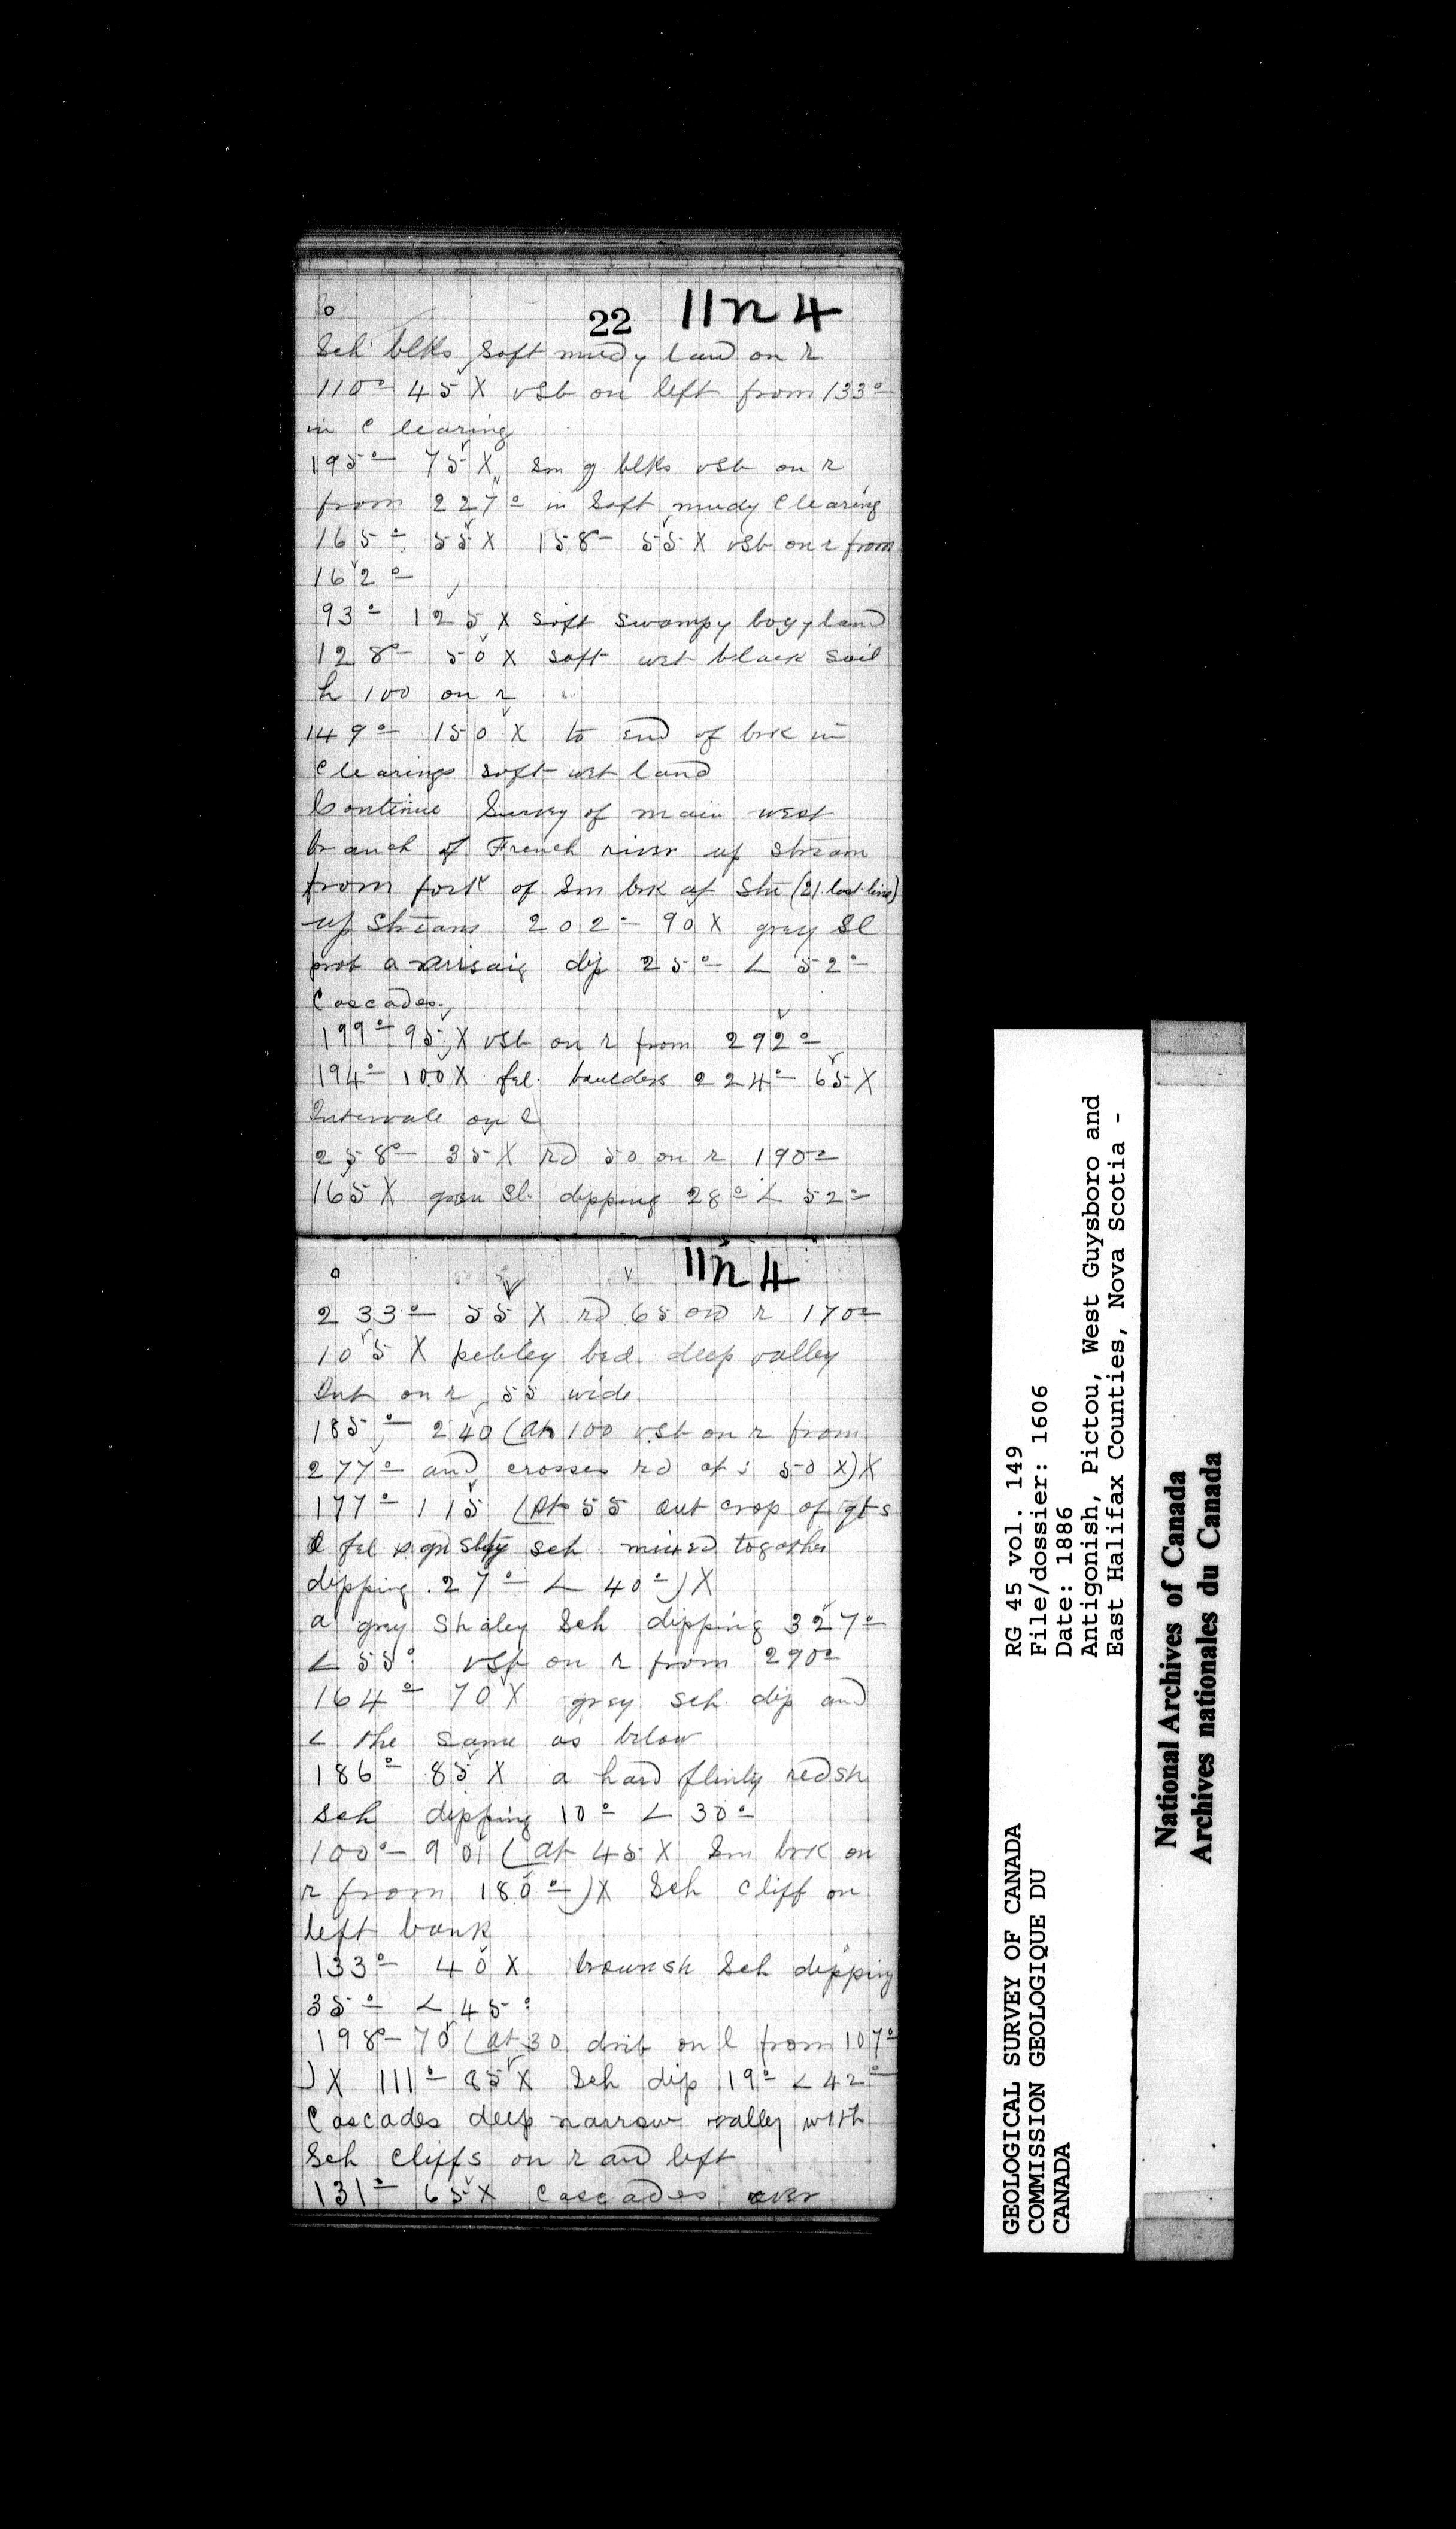 22 11n4
Sch blks soft mudy land on r
110° 45 X vsb on left from 133°
in Clearing
195° 75 X Sm g blks vsb on r
from 227° in Soft mudy Clearing
165° 55 X 158° 55 X vsb on r from
162°
93° 125 X soft swampy bogy land
128° 50 X soft wet black soil
h 100 on r
149° 150 X to end of brk in
Clearings soft wet land
Continue Survey of main west
branch of French river up stream
from fork of Sm brk at Stn (21 last line)
up Stream 202° 90 X grey Sl
prob arisaig dip 25° L 52°
Cascades.
199° 95 X vsb on r from 292°
194° 100 X fel. boulders 224° 65 X
Intervale on l
258° 35 X rd 50 on r 190°
165 X green Sl. dipping 28° L 52°
11n4
233° 55 X rd 65 on r 170°
105 X pebley bed deep valley
Int on r 55 wide
185° 240 (at 100 vsb on r from
277° and crosses rd at 50 X) X
177° 115 (At 55 out crop of qts
& fel & gn slty sch mixed together
dipping 27° L 40°) X
a grey Shaley Sch dipping 327°
L 55° vsb on r from 290°
164° 70 X grey sch dip and
L the same as below
186° 85 X a hard flinty redsh
sch dipping 10° L 30°
100° 90 (at 45 X Sm brk on
r from 180°) X Sch cliff on
left bank
133° 40 X brownsh Sch dipping
35° L 45°
198° 70 (at 30 drib on l from 107°
) X 111° 85 X Sch dip 19° L 42°
Cascades deep narrow valley with
Sch cliffs on r and left
131° 65 X Cascades over
GEOLOGICAL SURVEY OF CANADA
COMMISSION GEOLOGIQUE DU
CANADA
RG 45 vol. 149
File/dossier: 1606
Date: 1886
Antigonish, Pictou, West Guysboro and
East Halifax Counties, Nova Scotia -
National Archives of Canada
Archives nationales du Canada